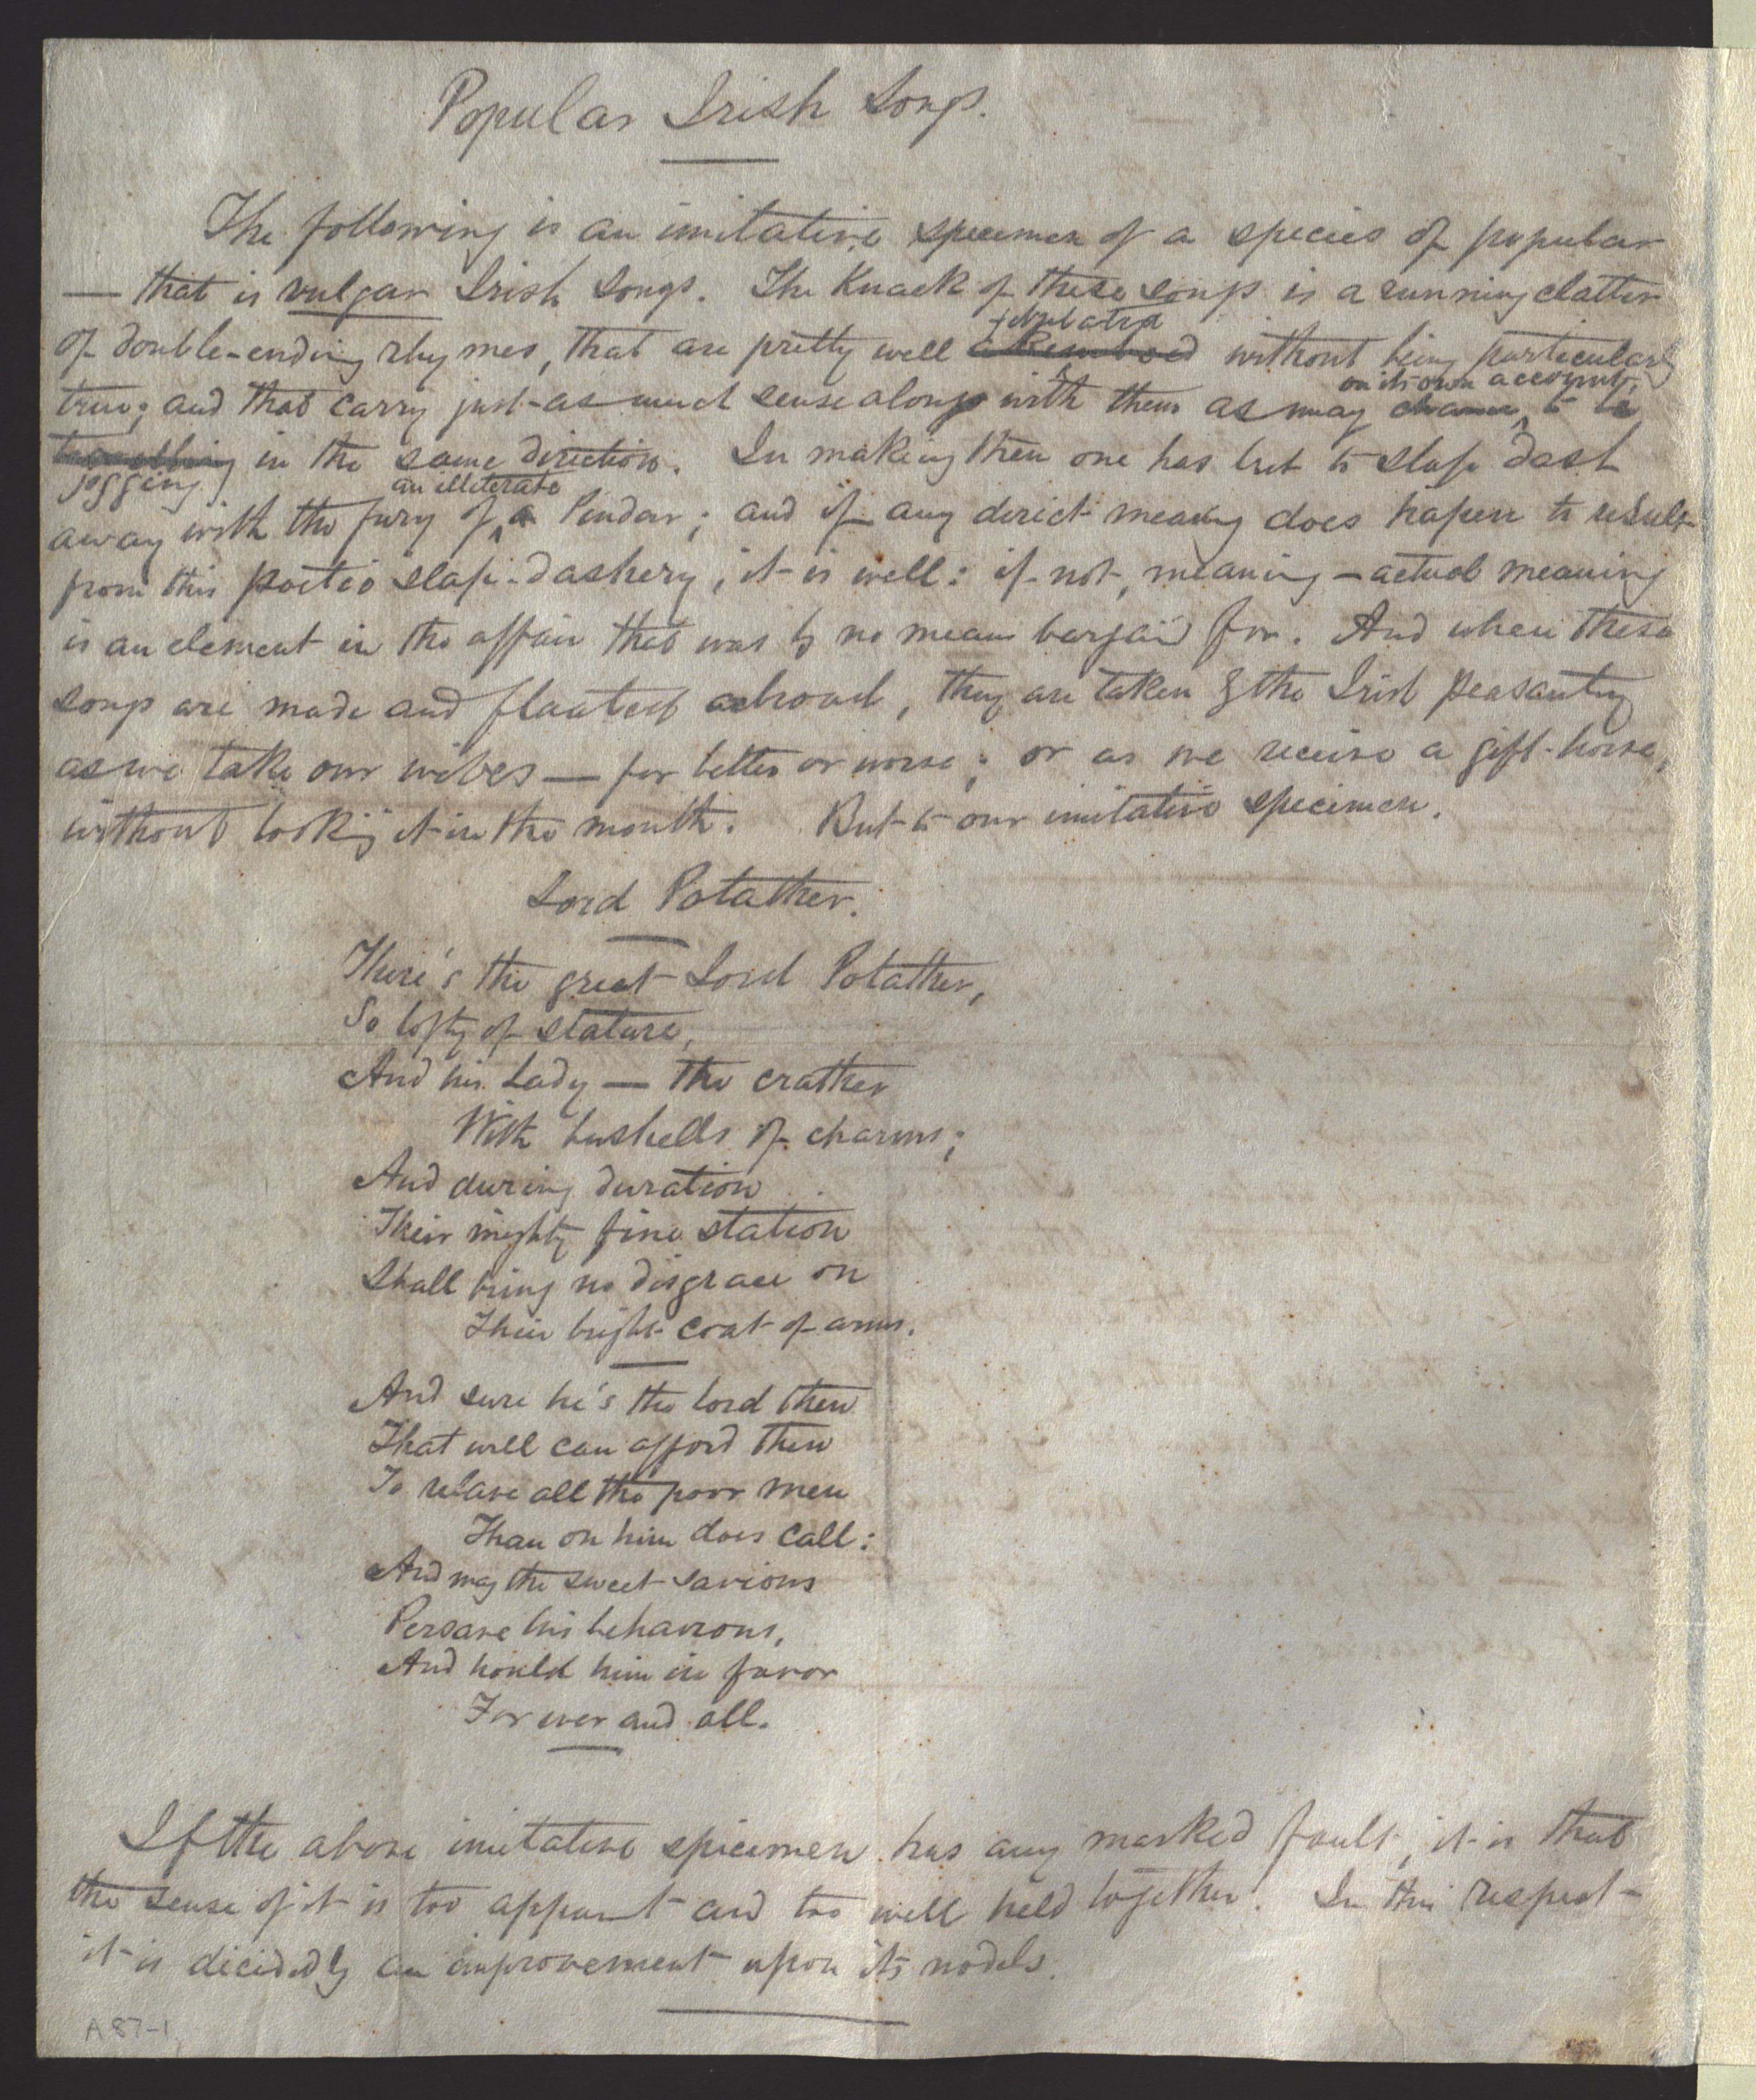 Popular Irish Songs.
The following is an imitative specimen of a species of popular
— that is vulgar Irish Songs. The Knack of these songs is a running clatter
of double-ending rhymes, that are pretty well without being particularly
true; and that carry just as much sense along with them as may on its own account, to be
jogging in the same direction. In making them one has but to slap dash
away with the fury of an illiterate Pindar; and if any direct meaning does hapen to result
from this poetic slap-dashery, it is well: if not, meaning – actual meaning
is an element in the affair that was by no means bargain'd for. And when these
songs are made and floated abroad, they are taken by the Irish peasantry
as we take our wives — for better or worse; or as we receive a gift-horse,
without looking it in the mouth. But to our imitative specimen.
Lord Potather.
There's the great Lord Potather,
So lofty of stature,
And his Lady — the crather
With bushells of charms;
And during duration
Their mighty fine station
Shall bring no disgrace on
Their bright coat of arms.
And sure he's the lord then
That well can afford then
To relave all the poor men
Than on him does call:
And may the sweet Saviour
Persave his behaviour,
And hould him in favor
For ever and all.
If the above imitative specimen has any marked fault, it is that
the sense of it is too apparent and too well held together. In this respect
it is decidedly an improvement upon its models.
A87-1